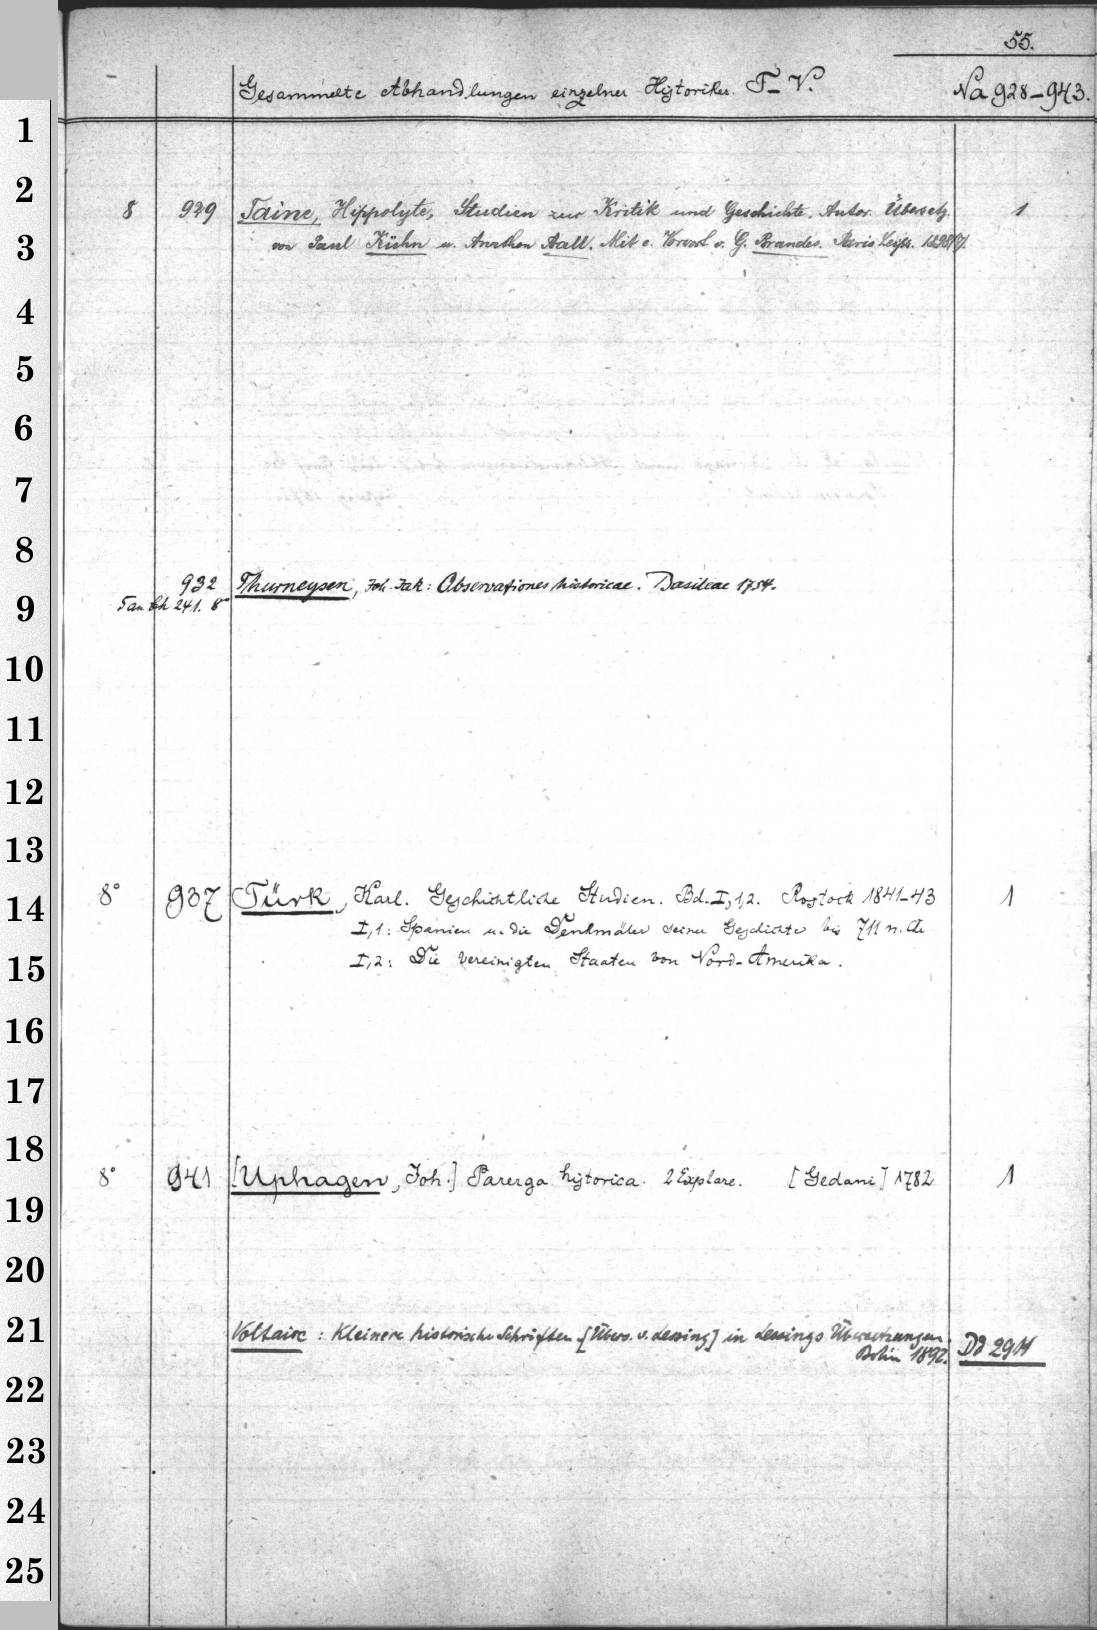 55.
Gesammelte Abhandlungen einzelner Historiker. T–V. Na 928–943.
1
2
8 929 Taine, Hippolyte, Studien zur Kritik und Geschichte. Autor. Übersetz. 1
3
von Paul Kühn u. Anathon Aall. Mit e. Vorwort v. G. Brandes. Paris Leipz. 1898
4
5
6
7
8
932 Thurneysen, Joh. Jak: Observationes historicae. Basileae 1754.
9
241. 8°
10
11
12
13
14
8° 937 Türk, Karl. Geschichtliche Studien. Bd. I,1,2. Rostock 1841–43 1
I,1: Spanien u. die Denkmäler seiner Geschichte bis 711 n. Ch
15
I,2: Die Vereinigten Staaten von Nord-Amerika.
16
17
18
8° 941 [Uphagen, Joh.] Parerga historica. 2 Explare. [Gedani] 1782 1
19
20
21
Voltaire: Kleinere historische Schriften [Übers. v. Lessing] in Lessings Übersetzungen.
Berlin 1892. Dd 2911
22
23
24
25